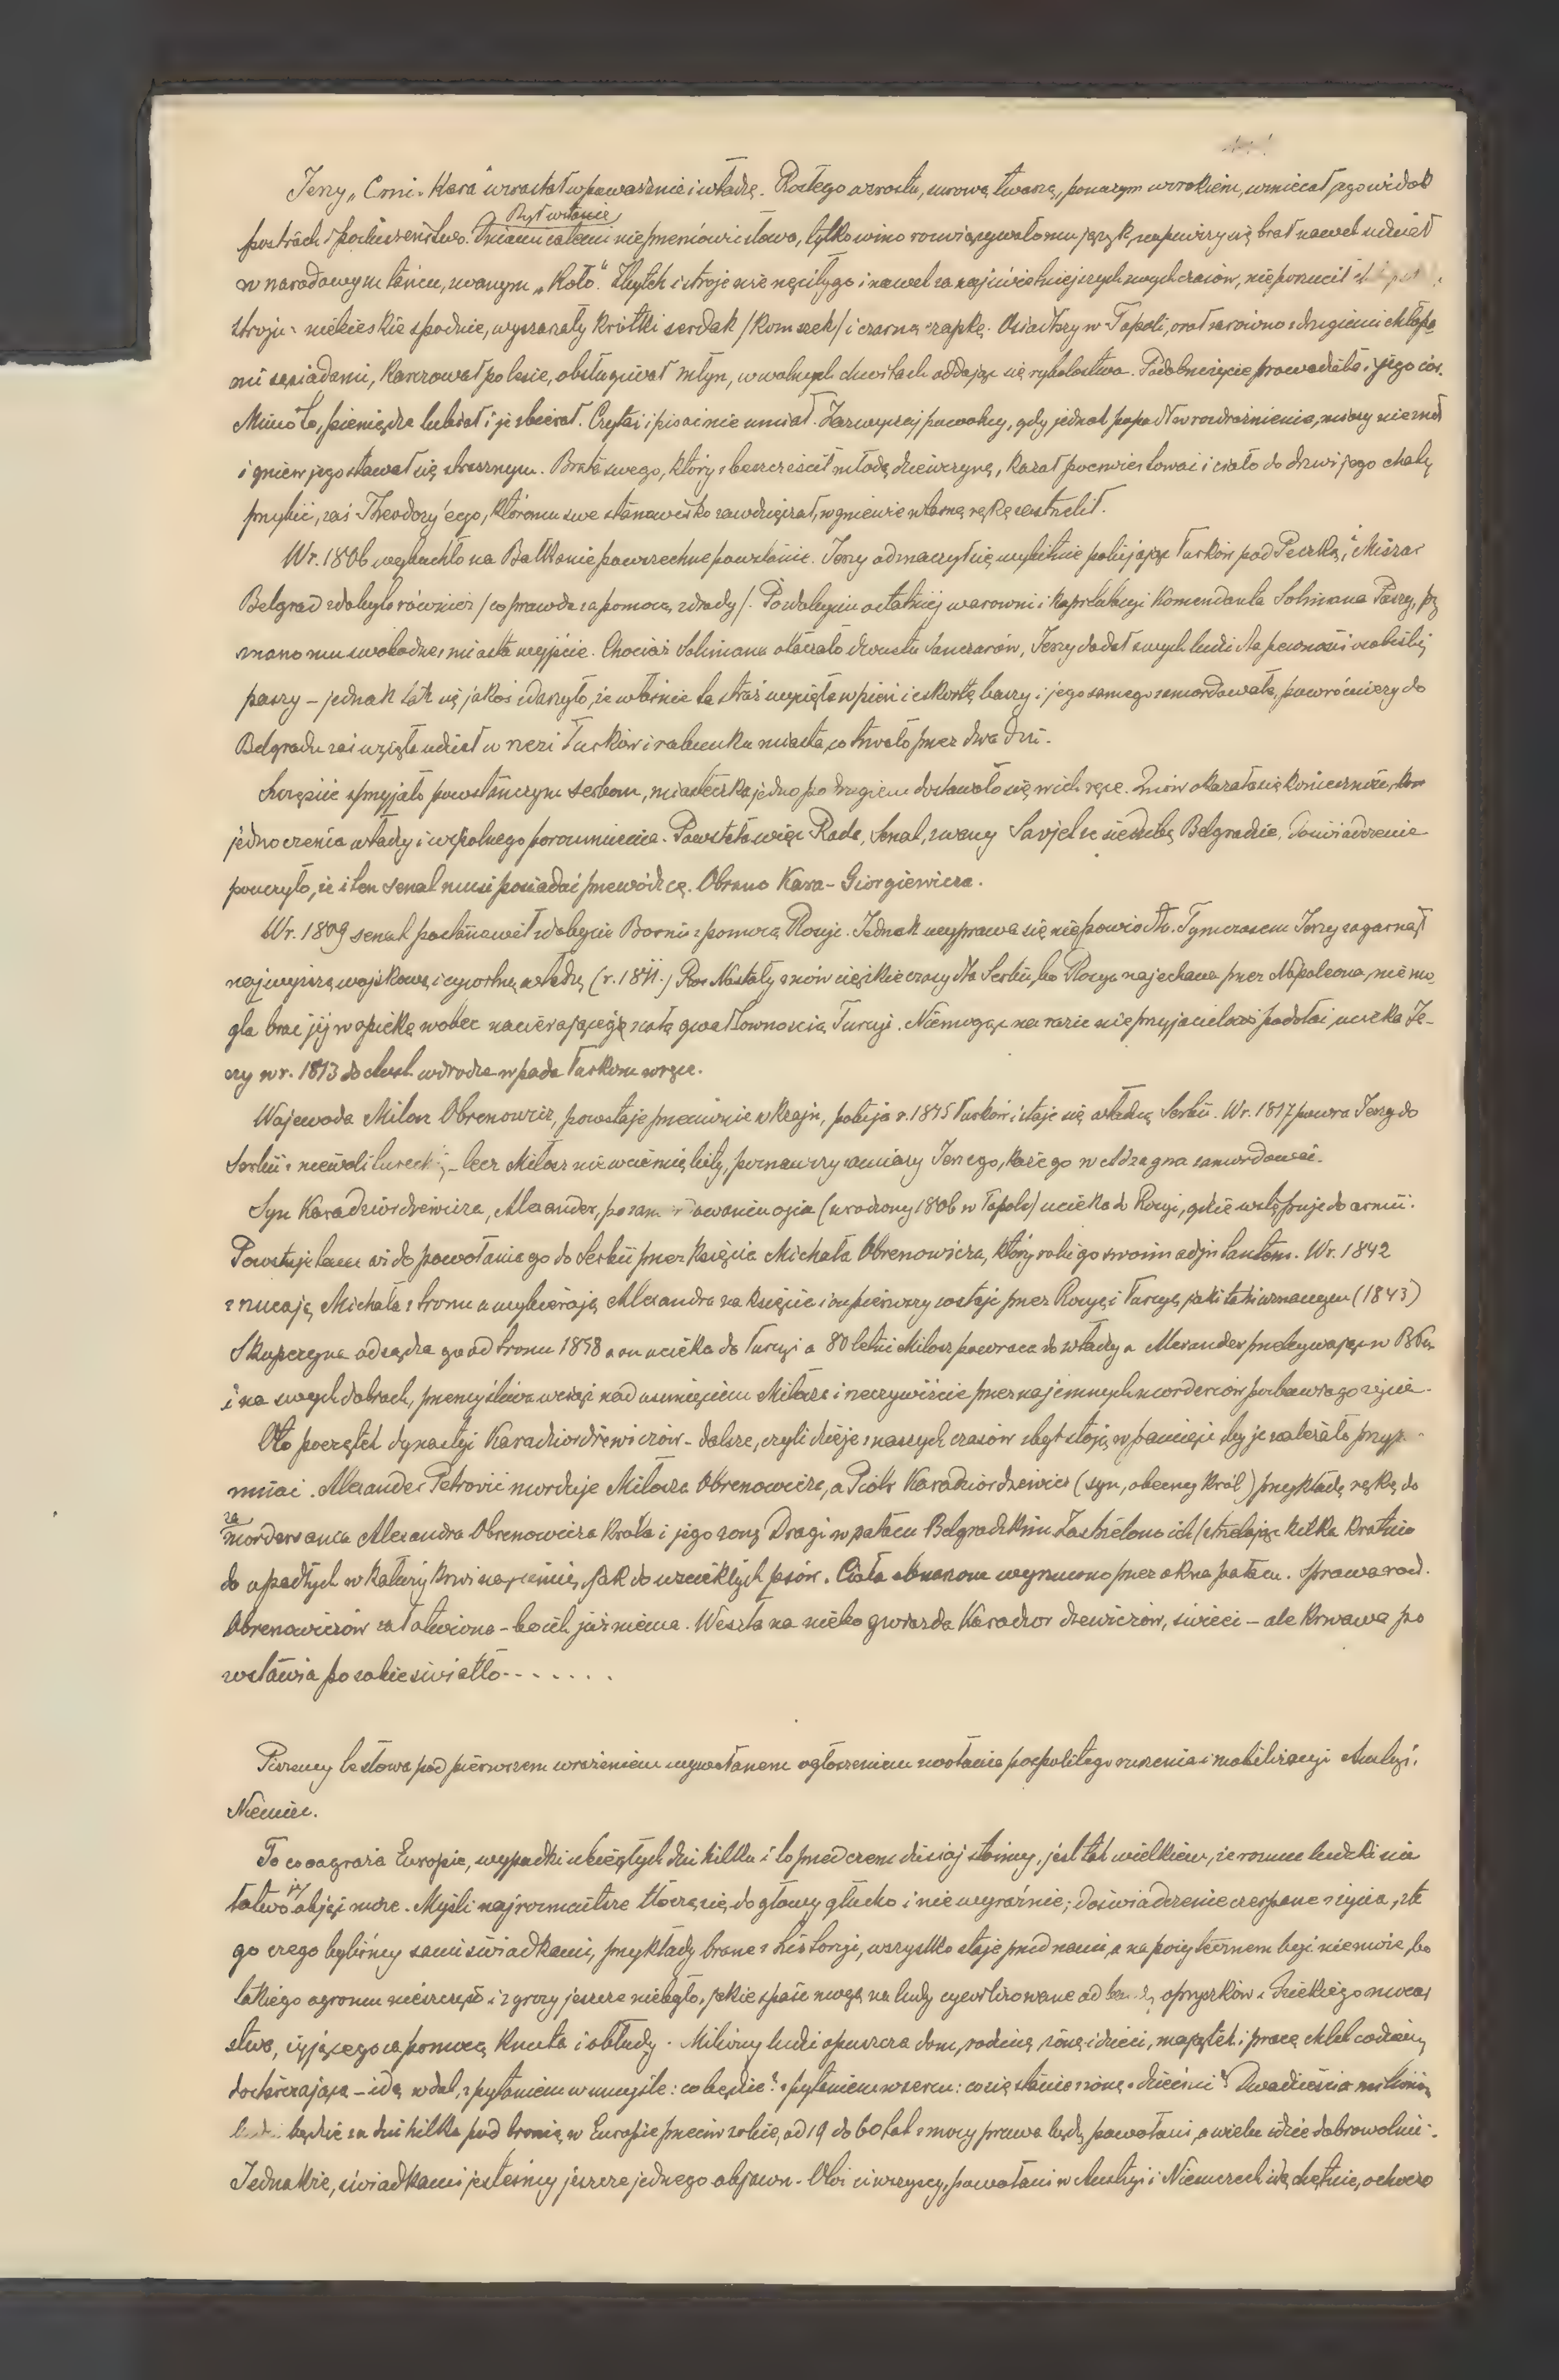 Jerzy „Crni-Kara" wzrastał w poważanie i władzę. Rosłego wzrostu, surową twarzą, ponurym wzrokiem, wzniecał jego widok
Był w stanie
postrach i posłuszeństwo. Dniami całemi nie przemówić słowa, tylko wino rozwiązywało mu język, napiwszy się brał nawet udział
w narodowym tańcu, zwanym „Koło". Zbytek i stroje nie nęciły go i nawet za najświetniejszych swych czasów, nie porzucił
stroju: niebieskie spodnie, wyszarzały krótki serdak /Komszek/ i czarną czapkę. Osiadłszy w Topoli, orał zarówno z drugiemi chłopa
mi sąsiadami, karczował po lesie, obsługiwał młyn, w wolnych chwilach oddając się rybołostwu. Podobne życie prowadziła i jego cór.
Mimo to, pieniądze lubiał i je zbierał. Czytać i pisać nie umiał. Zazwyczaj poważny, gdy jednak popadł w rozdrażnienie, miary nie znał
i gniew jego stawał się strasznym. Brata swego, który zbezcześcił młodą dziewczynę, kazał powiesić i ciało do drzwi jego chaty
przybić, zaś Theodozy'ego, któremu swe stanowisko zawdzięczał, w gniewie własną ręką zastrzelił.
W r. 1806 wybuchło na Bałkanie powszechne powstanie. Jerzy odznaczył się wybitnie pobijając Turków pod Peczką, i Miszar
Belgrad zdobyto również /co prawda za pomocą zdrady/. Po zdobyciu ostatniej warowni i kapitulacyi Komendanta Solimana Paszy, przy
znano mu swobodne z miasta wyjście. Chociaż Solimana otaczało dwustu Janczarów, Jerzy dodał swych ludzi dla pewności osobistej
paszy – jednak tak się jakoś zdarzyło, że właśnie ta straż wycięła w pień i eskortę baszy i jego samego zamordowała, powróciwszy do
Belgradu zaś wzięła udział w rzezi Turków i rabunku miasta, co trwało przez dwa dni.
Szczęście sprzyjało powstańczym Serbom, miasteczka jedno po drugiem dostawało się w ich ręce. Znów okazała się konieczność
jednoczenia władzy i wspólnego porozumienia. Powstała więc Rada, Senat, zwany Savjet z siedzibą Belgradzie. Doświadczenie
pouczyło, że i ten senat musi posiadać przewódzcę. Obrano Kara-Giorgiewicza.
W r. 1809 senat postanowił zdobycie Bosnii z pomocą Rosyi. Jednak wyprawa się nie powiodła. Tymczasem Jerzy zagarnął
najwyższą wojskową i cywilną władzę (r. 1811.) Nastały znów ciężkie czasy dla Serbii, bo Rosya najechana przez Napoleona, nie mo
gła brać jej w opiekę wobec nacierającej z całą gwałtownością Turcyi. Niemogąc na razie nieprzyjacielowi podołać, ucieka Je-
rzy w r. 1813 do Austr. w drodze wpada Turkom w ręce.
Wojewoda Milosz Obrenowicz, powstaje przeciwnie w kraju, pobija r. 1815 Turków i staje się władcą Serbii. W r. 1817 powra Jerzy do
Serbii z niewoli tureckiej, – lecz Miłosz nie w ciemię bity, poznawszy zamiary Jerzego, każe go w Adzagna zamordować.
Syn Karadziordziewicza, Alexander, po zamordowaniu ojca (urodzony 1806 w Topoli) ucieka do Rosyi, gdzie wstępuje do armii.
Pozostaje tam aż do powołania go do Serbii przez księcia Michała Obrenowicza, który robi go swoim adjutantem. W r. 1842
zrzucają Michała z tronu a wybierają Alexandra na księcia i on pierwszy zostaje przez Rosyę i Turcyę jako taki uznanym (1843)
Skupczyna odsądza go od tronu 1858 a on ucieka do Turcyi a 80 letni Milosz powraca do władzy a Alexander przebywając w
i na swych dobrach, przemyśliwa wciąż nad usunięciem Miłosza i rzeczywiście przez najemnych morderców pozbawia go życia.
Oto początek dynastyi Karadziordżewiczów – dalsze, czyli dzieje naszych czasów zbyt stoją w pamięci by je należało przypo
minać. Alexander Petrović morduje Miłosza Obrenowicza, a Piotr Karadziordzewicz (syn, obecny król) przykłada rękę do
za
mordowania Alexandra Obrenowicza króla i jego żony Dragi w pałacu Belgradzkim Zastrzelono ich (strzelając kilka kratnie
do opadłych w kałuży krwi na ziemię, jak do wściekłych psów. Ciała obnażone wyrzucono przez okna pałacu. Sprawa rod.
Obrenowiczów załatwiona – bo ich już niema. Weszła na niebo gwiazda Karadzordzewiczów, świeci – ale krwawe po
zostawia po sobie światło.......
Piszemy te słowa pod pierwszem wrażeniem wywołanem ogłoszeniem zwołania pospolitego ruszenia i mobilizacyi Austryi i
Niemiec.
To co zagraża Europie, wypadki ubiegłych dni kilku i to przed czem dzisiaj stoimy, jest tak wielkiem, że rozum ludzki nie
je
łatwo objąć może. Myśli najrozmaitsze tłoczą się do głowy głucho i nie wyraźnie; doświadczenie czerpane z życia, z te
go czego byliśmy sami świadkami, przykłady brane z historyi, wszystko staje przed nami, a na pożytecznem być nie może, bo
takiego ogromu nieszczęść i zgrozy jeszcze nie było, jakie spaść mogą na ludy cywilizowane od bandy opryszków i dzikiego mocar
stwa, żyjącego za pomocą knuta i obłudy. Miliony ludzi opuszcza dom, rodzinę, żonę i dzieci, majątek i pracę chleb codzienny
dostarczającą – idą w dal, z pytaniem w umyśle: co będzie? z pytaniem w sercu: co się stanie z żoną z dziećmi? Dwadzieścia milionów
będzie za dni kilka pod bronią w Europie przeciw sobie, od 19 do 60 lat z mocy prawa będą powołani, a wielu idzie dobrowolnie.
Jednakże, świadkami jesteśmy jeszcze jednego objawu. Otóż ci wszyscy, powołani w Austryi i Niemczech idą chętnie, ochoczo